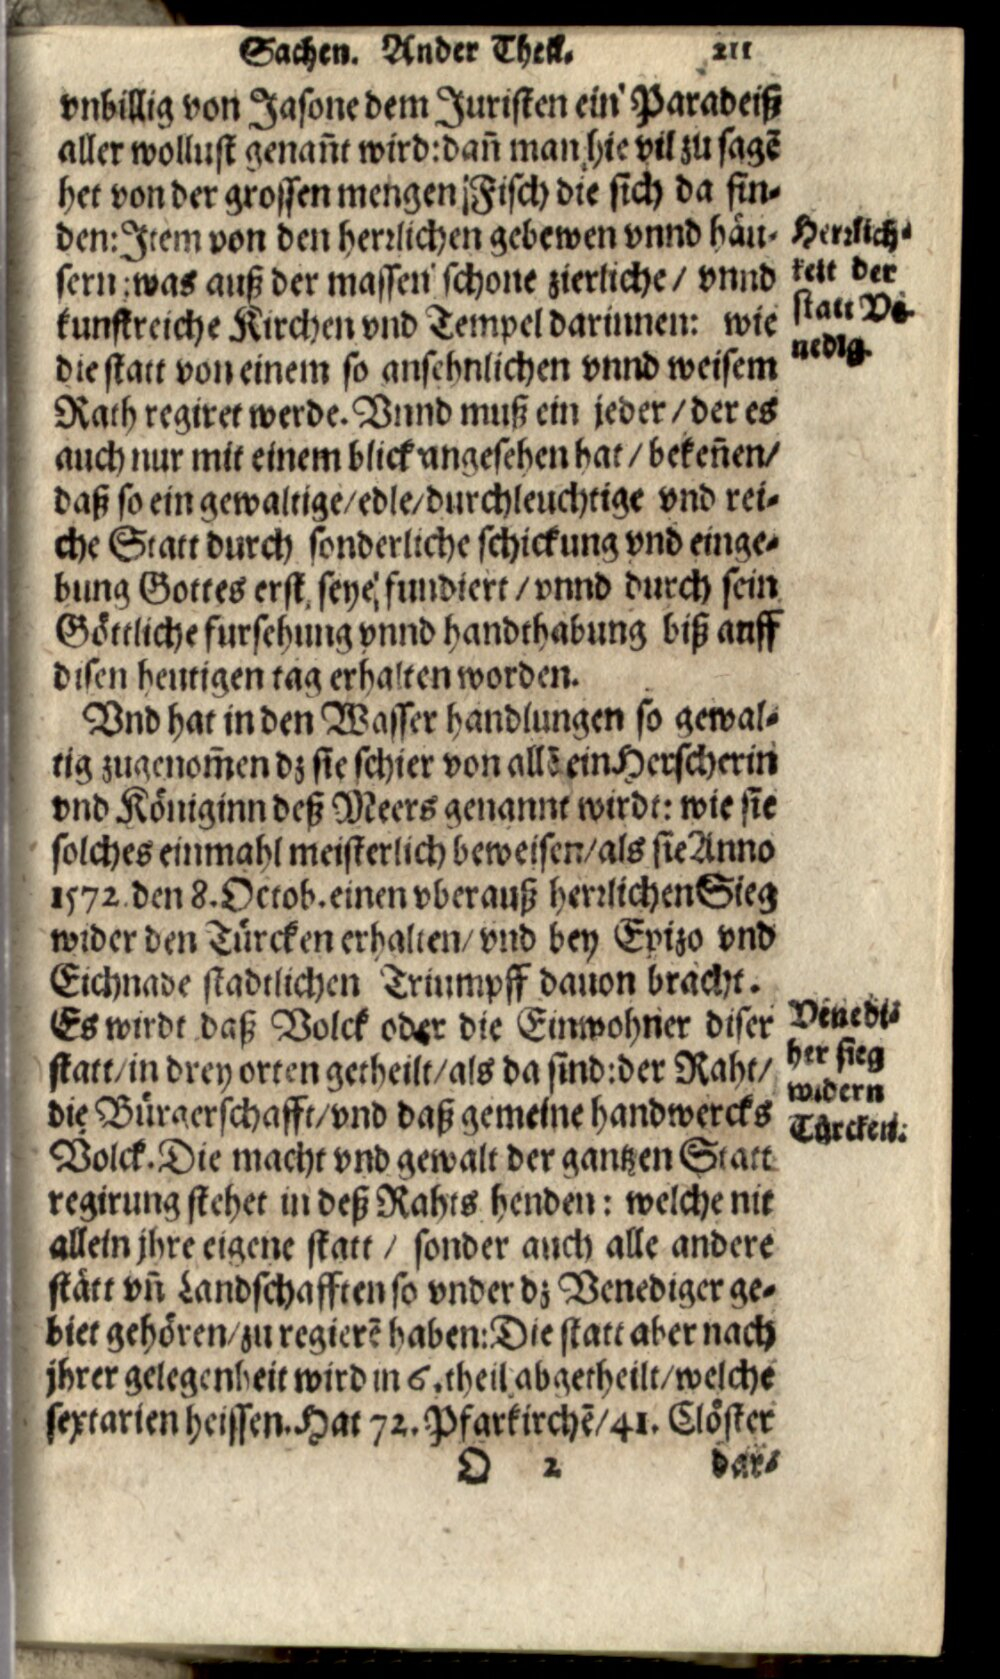 Sachen. Ander Theil. 211
vnbillig von Jasone dem Juristen ein Paradeiß
aller wollust genañt wird: dañ man hie vil zu sagē
het von der grossen mengen Fisch die sich da fin-
den: Item von den herrlichen gebewen vnnd häu-
sern: was auß der massen schone zierliche / vnnd
kunstreiche Kirchen vnd Tempel darinnen: wie
die statt von einem so ansehnlichen vnnd weisem
Rath regiret werde. Vnnd muß ein jeder / der es
auch nur mit einem blick angesehen hat / bekeñen /
daß so ein gewaltige / edle / durchleuchtige vnd rei-
che Statt durch sonderliche schickung vnd einge-
bung Gottes erst seye fundiert / vnnd durch sein
Göttliche fursehung vnnd handthabung biß auff
disen heutigen tag erhalten worden.
Vnd hat in den Wasser handlungen so gewal-
tig zugenom̃en dz sie schier von allē ein Herscherin
vnd Königinn deß Meers genannt wirdt: wie sie
solches einmahl meisterlich beweisen / als sie Anno
1572. den 8. Octob. einen vberauß herrlichen Sieg
wider den Türcken erhalten / vnd bey Epizo vnd
Eichnade stadtlichen Triumpff dauon bracht.
Es wirdt daß Volck oder die Einwohner diser
statt / in drey orten getheilt / als da sind: der Raht /
die Bürgerschafft / vnd daß gemeine handwercks
Volck. Die macht vnd gewalt der gantzen Statt
regirung stehet in deß Rahts henden: welche nit
allein jhre eigene statt / sonder auch alle andere
stätt vñ Landschafften so vnder dz Venediger ge-
biet gehören / zu regierē haben: Die statt aber nach
jhrer gelegenheit wird in 6. theil abgetheilt / welche
sextarien heissen. Hat 72. Pfarkirchē / 41. Clöster
O 2 dar-
Herrlich-
keit der
statt Ve-
nedig.
Venedi-
her sieg
widern
Türcken.